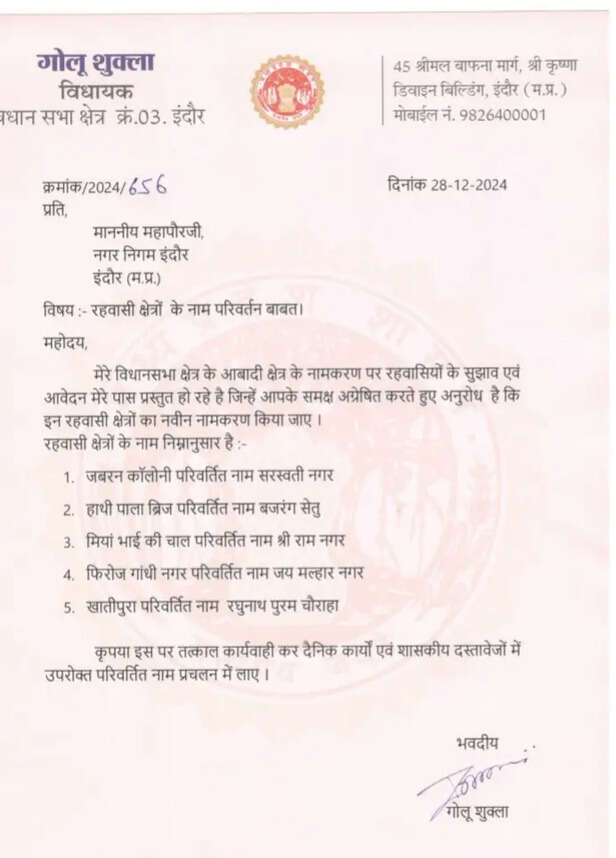 गोलू शुक्ला
विधायक
विधान सभा क्षेत्र क्रं.03. इंदौर
45 श्रीमल बाफना मार्ग, श्री कृष्णा
डिवाइन बिल्डिंग, इंदौर (म.प्र.)
मोबाईल नं. 9826400001
क्रमांक/2024/656
दिनांक 28-12-2024
प्रति,
माननीय महापौरजी,
नगर निगम इंदौर
इंदौर (म.प्र.)
विषय :- रहवासी क्षेत्रों के नाम परिवर्तन बाबत।
महोदय,
मेरे विधानसभा क्षेत्र के आबादी क्षेत्र के नामकरण पर रहवासियों के सुझाव एवं
आवेदन मेरे पास प्रस्तुत हो रहे है जिन्हें आपके समक्ष अग्रेषित करते हुए अनुरोध है कि
इन रहवासी क्षेत्रों का नवीन नामकरण किया जाए ।
रहवासी क्षेत्रों के नाम निम्नानुसार है :-
1. जबरन कॉलोनी परिवर्तित नाम सरस्वती नगर
2. हाथी पाला ब्रिज परिवर्तित नाम बजरंग सेतु
3. मियां भाई की चाल परिवर्तित नाम श्री राम नगर
4. फिरोज गांधी नगर परिवर्तित नाम जय मल्हार नगर
5. खातीपुरा परिवर्तित नाम रघुनाथ पुरम चौराहा
कृपया इस पर तत्काल कार्यवाही कर दैनिक कार्यों एवं शासकीय दस्तावेजों में
उपरोक्त परिवर्तित नाम प्रचलन में लाए ।
भवदीय
गोलू शुक्ला